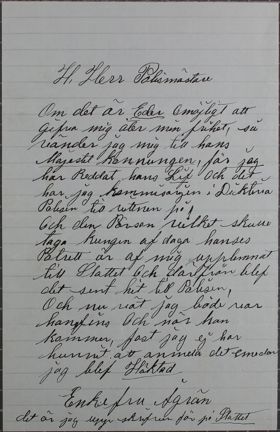 H. Herr Polismästare
Om det är Eder omöjligt att
gifva mig åter min frihet, så
vänder jag mig till hans
Majestät Konnungen, för jag
har Räddat hans Lif Och det
har jag kommisarien i Detktiva
Polisen till vittnen på,
Och den Pärson vilket skulle
taga kungen af daga hanses
Poträtt är af mig upplemnat
till Slottet Och därifrån blef
det sent hit till Polisen,
Och nu vät jag både var
hanfins Och när han
kommer, fast jag ej har
hunnit att anmäla det emedan
jag blef Häktad
Enkefru Agrän
det är jag som skrifver för på Slottet